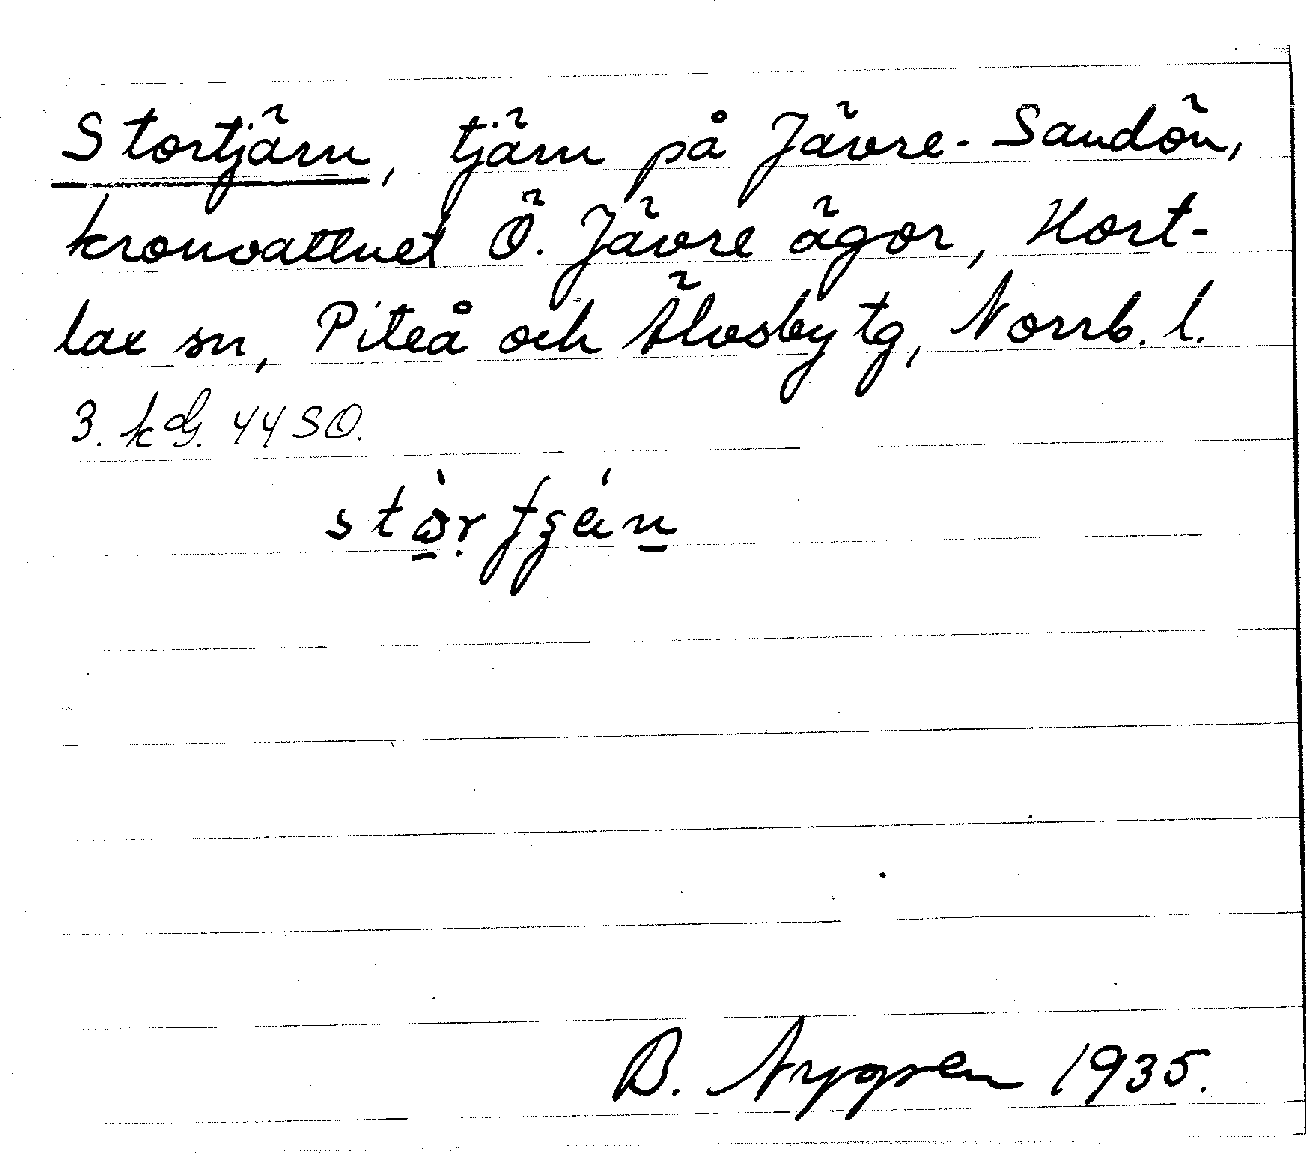 Stortjärn, tjärn på Jävre-Sandön,
kronvattnet Ö. Jävre ägor, Hort-
lax sn, Piteå och Älvsby tg, Norrb. l.
3. kG. 44 SO.
B. Nygren 1935.